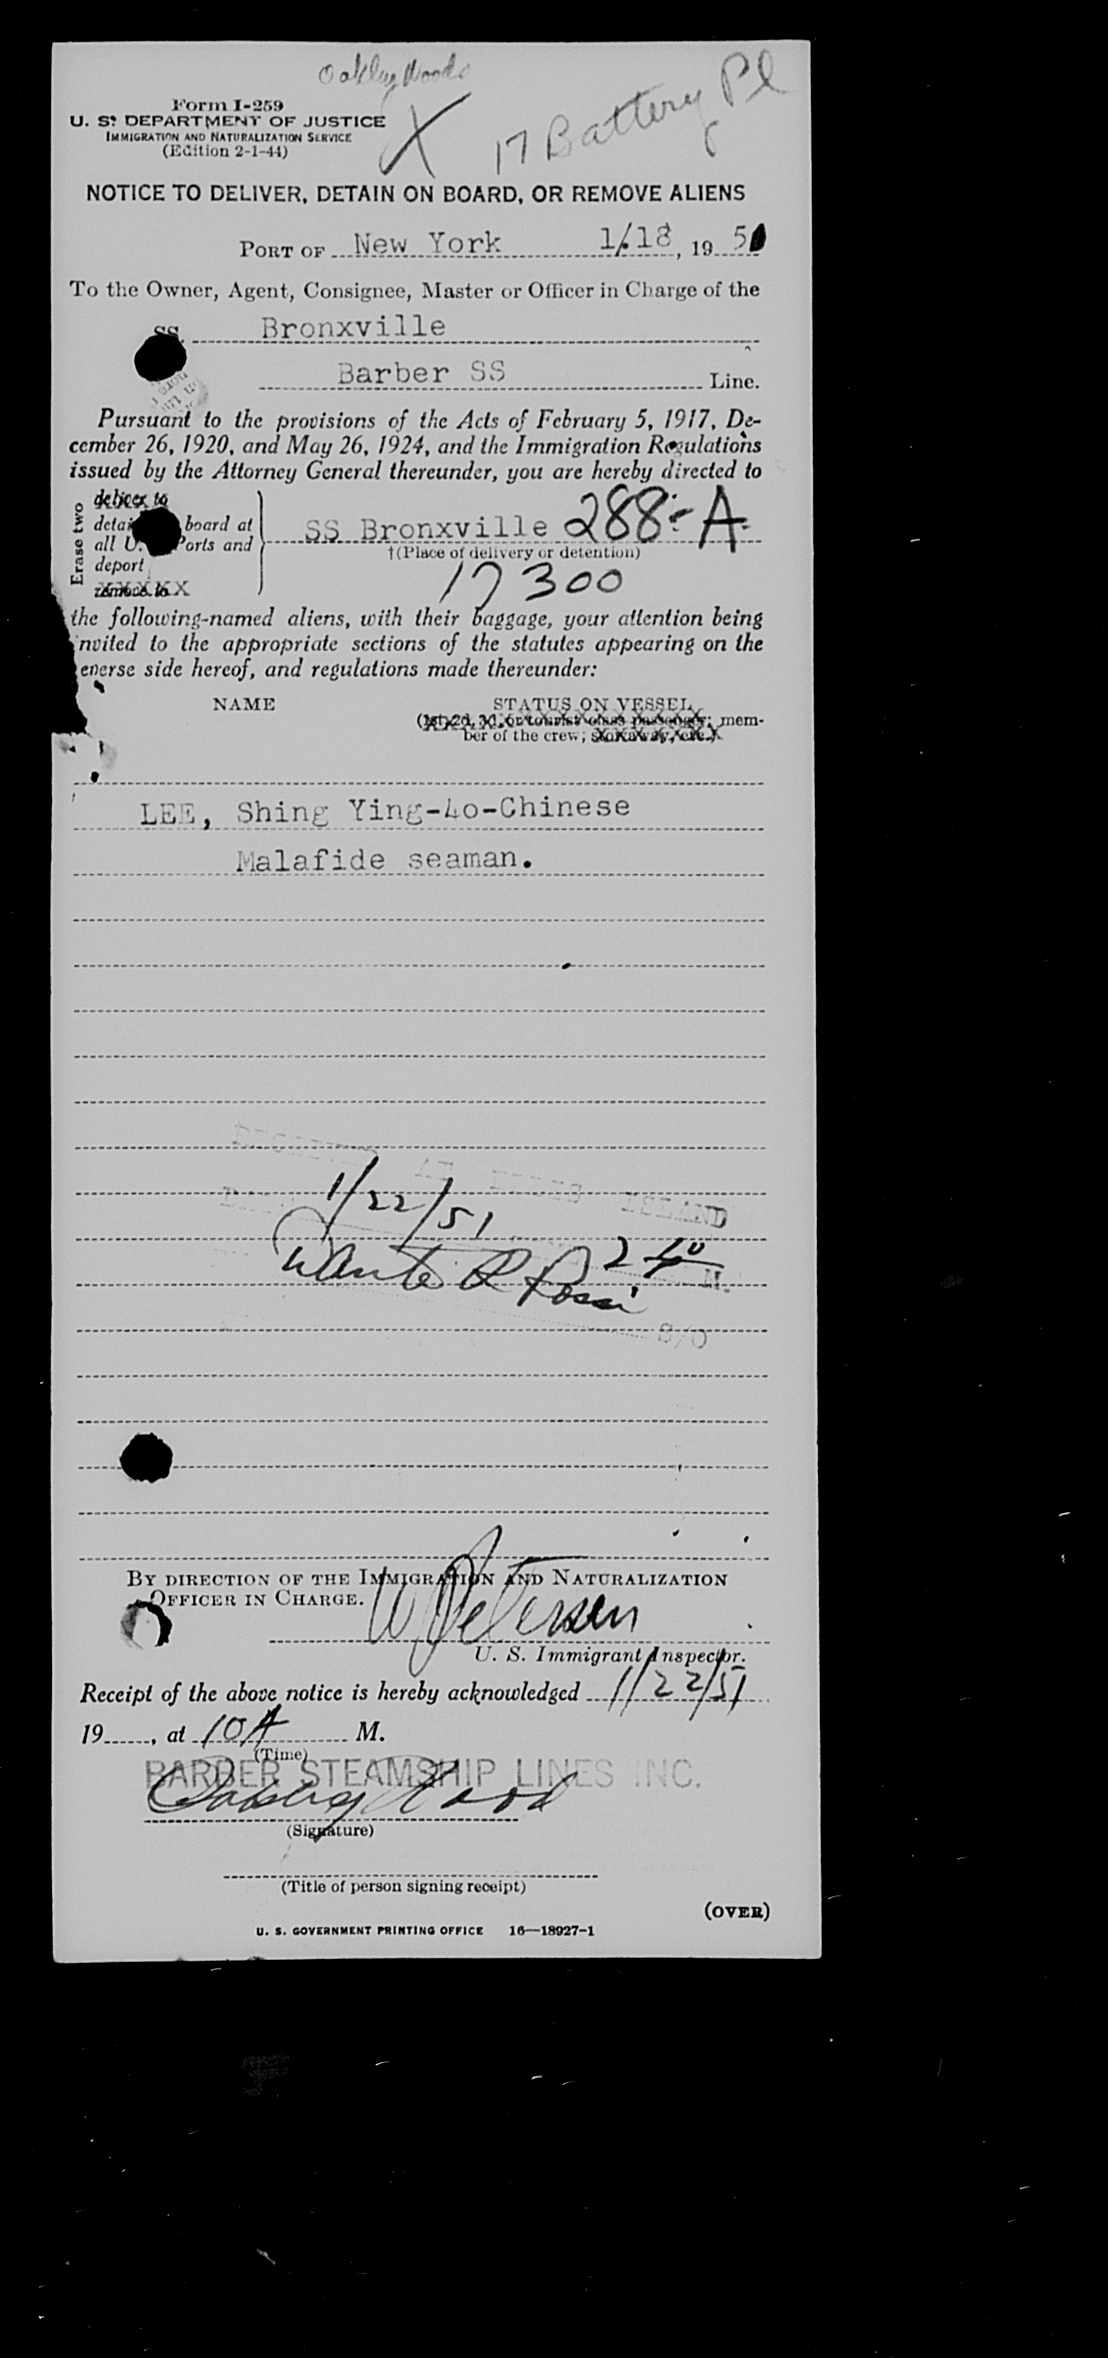 Oakley Woods
17 Battery Pl
X
Form I-259
U. S. DEPARTMENT OF JUSTICE
IMMIGRATION AND NATURALIZATION SERVICE
(Edition 2-1-44)
NOTICE TO DELIVER, DETAIN ON BOARD, OR REMOVE ALIENS
PORT OF New York 1/18, 19 5
To the Owner, Agent, Consignee, Master or Officer in Charge of the
SS. Bronxville
Barber SS Line.
Pursuant to the provisions of the Acts of February 5, 1917, De-
cember 26, 1920, and May 26, 1924, and the Immigration Regulations
issued by the Attorney General thereunder, you are hereby directed to
Erase two
deliver to
detai board at
all U. Ports and
deport
remove to
SS Bronxville 288-A
†(Place of delivery or detention)
17300
the following-named aliens, with their baggage, your attention being
nvited to the appropriate sections of the statutes appearing on the
everse side hereof, and regulations made thereunder:
NAME STATUS ON VESSEL
(1st, 2d, 3d, or tourist class passenger; mem-
ber of the crew; stowaway, etc.)
LEE, Shing Ying-40-Chinese
Malafide seaman.
ISLAND
1/22/51
2 40 M.
Dante R Rossi
S/O
BY DIRECTION OF THE IMMIGRATION AND NATURALIZATION
OFFICER IN CHARGE.
W Petersen
U. S. Immigrant Inspector.
Receipt of the above notice is hereby acknowledged 1/22/51
19 , at 10 A M.
(Time)
BARBER STEAMSHIP LINES INC.
Oakley Wood
(Signature)
(Title of person signing receipt)
(OVER)
U. S. GOVERNMENT PRINTING OFFICE 16—18927-1